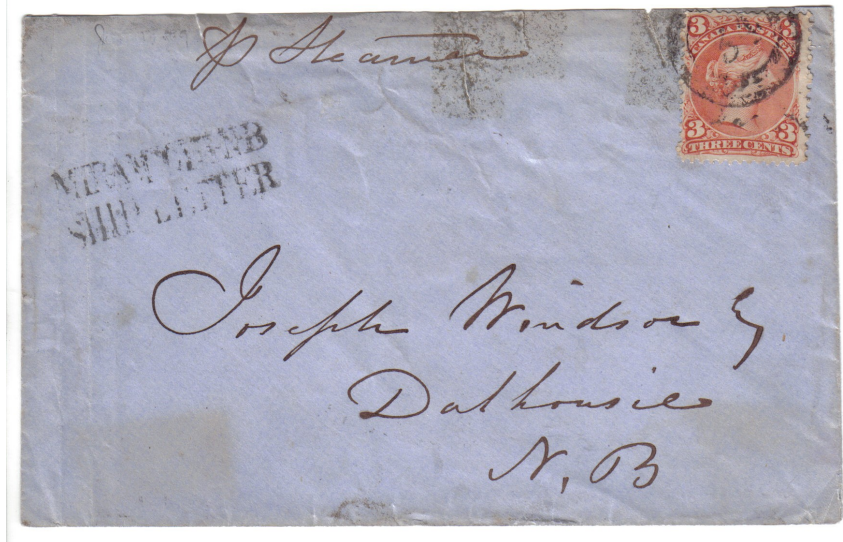 p Steamer
3 3
CANADA POSTAGE
3 3
THREE CENTS
MIRAMICHI N B
SHIP LETTER
Joseph Windsor Esq
Dalhousie
N. B